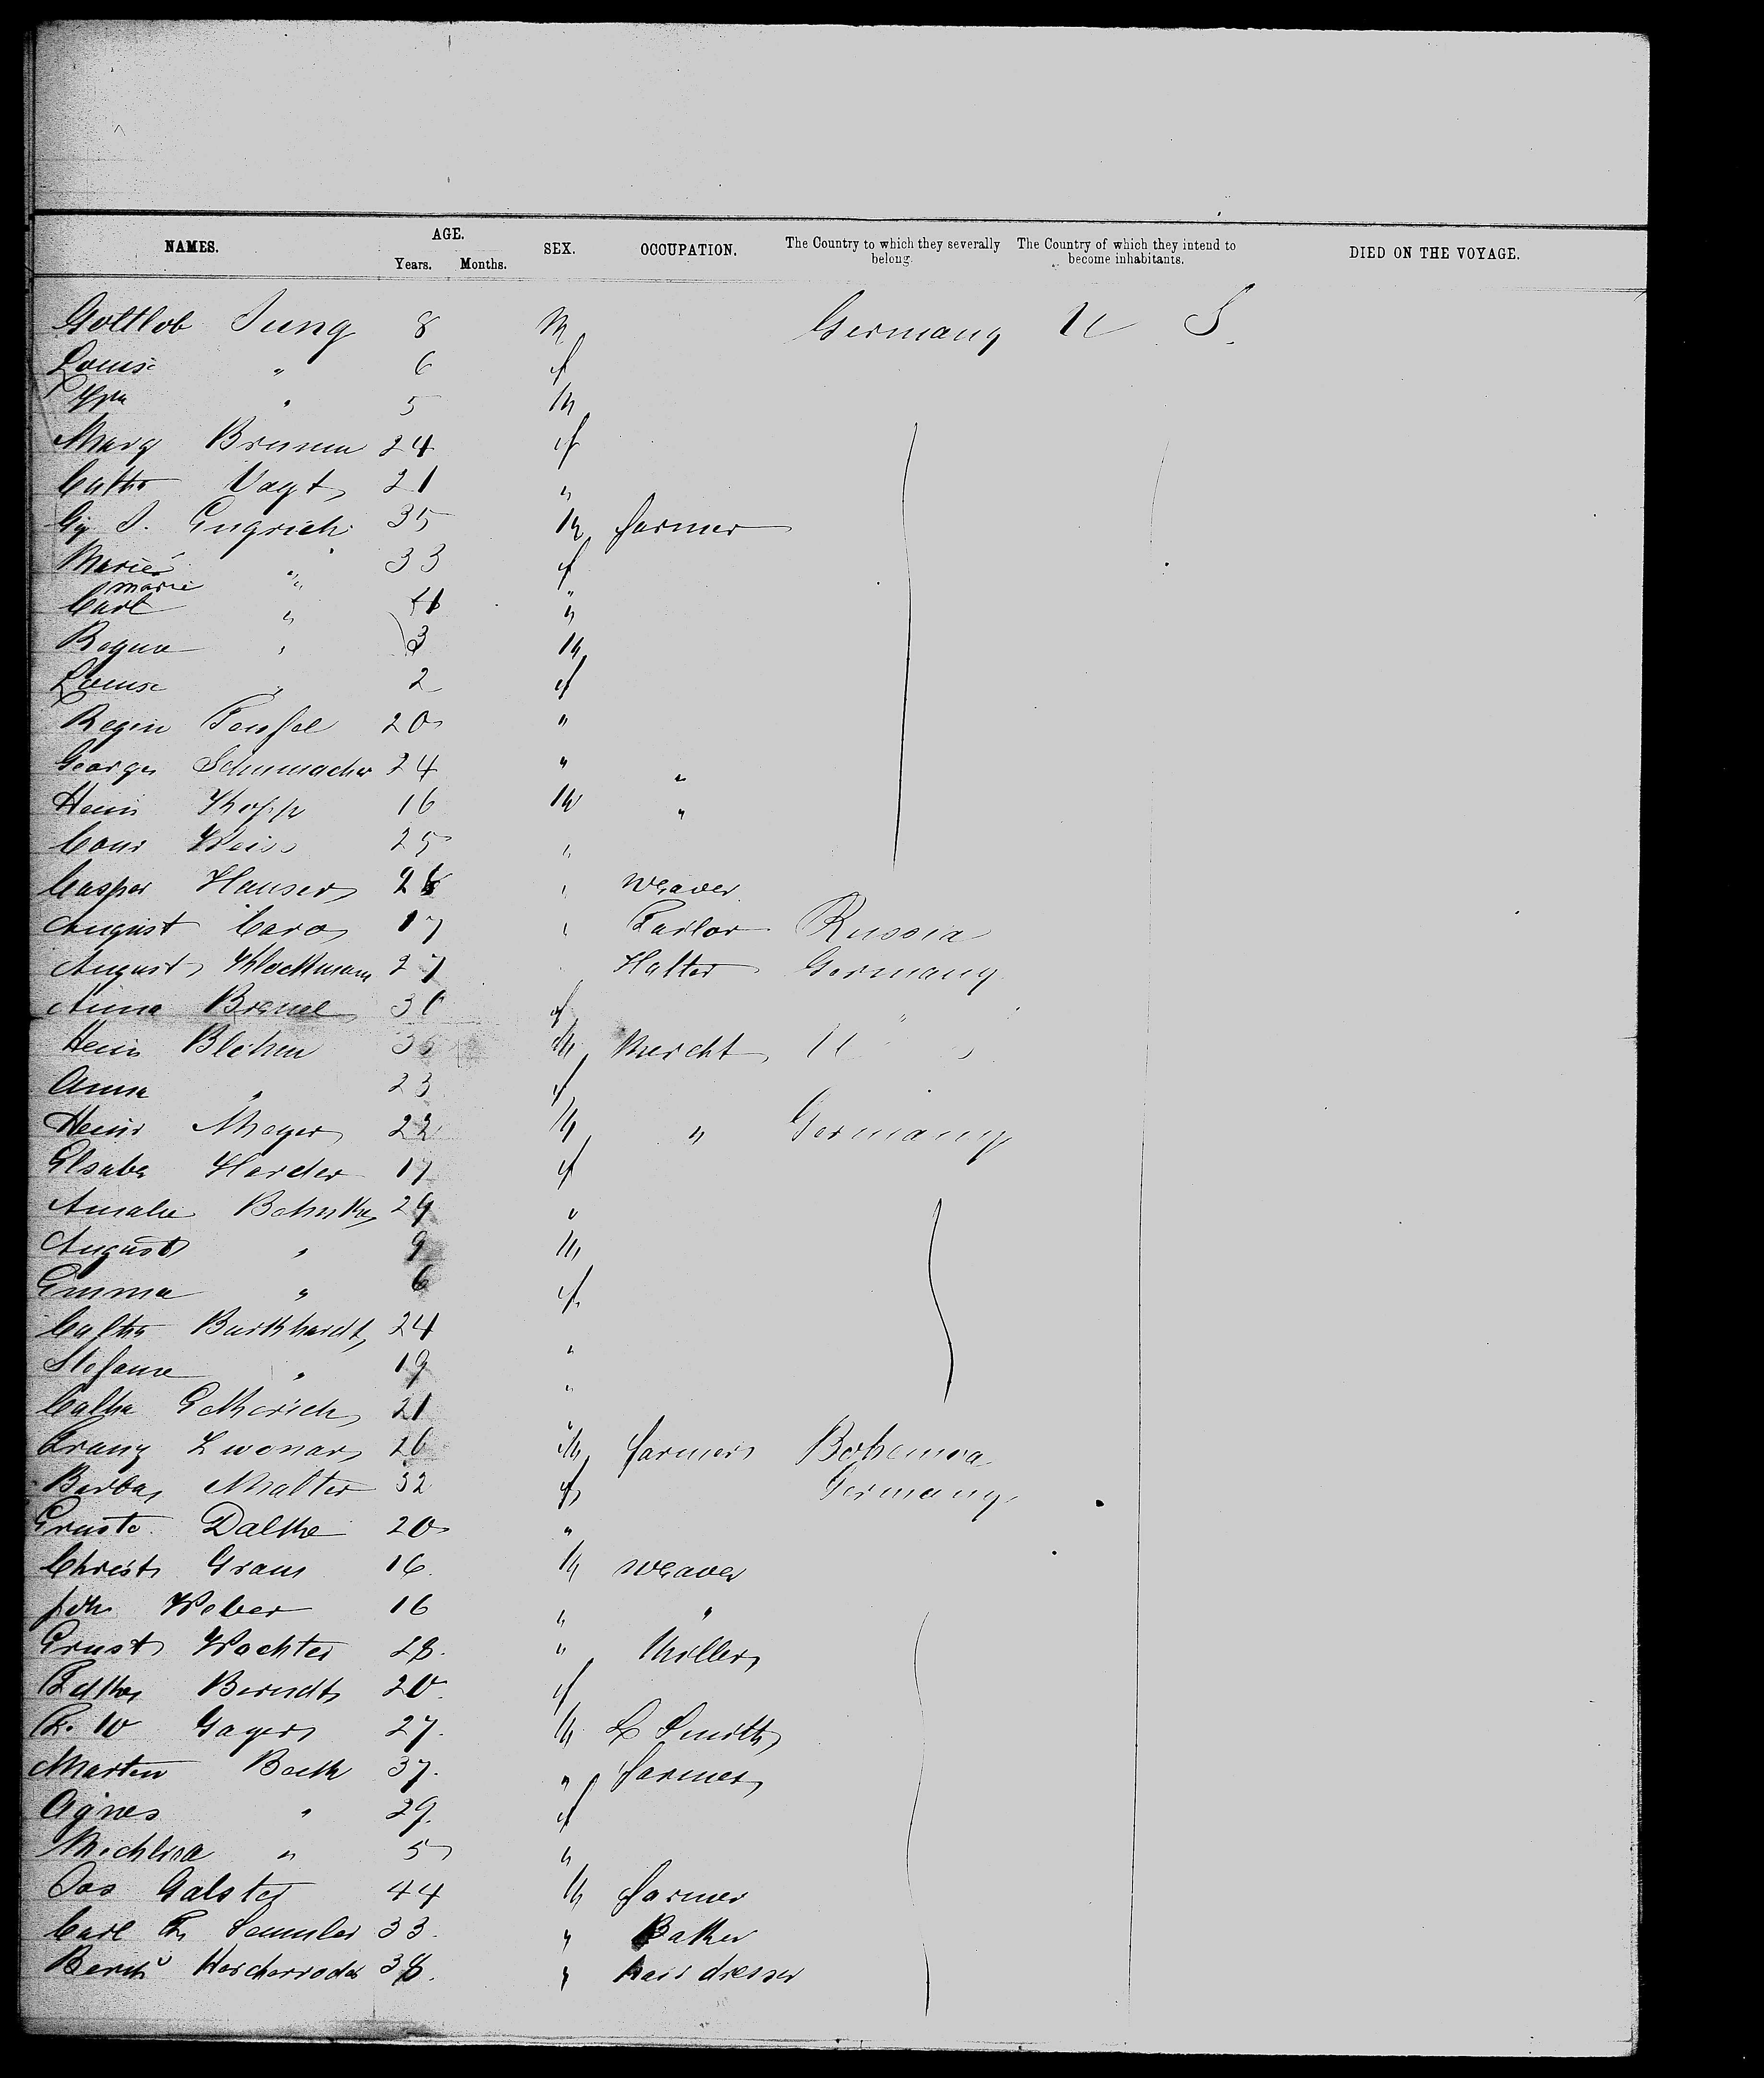 NAMES. AGE. Years. Months. SEX. OCCUPATION. The Country to which they severally belong. The Country of which they intend to become inhabitants. DIED ON THE VOYAGE.
Gottlob Jung 8 M Germany U S.
Louise " 6 f
" 5 M
Marg Brumm 24 f
Catha Vagt 21 "
Gg J. Gugrich 35 M farmer
Marie " 33 f
marie "
Carl " 4 "
Regna " 3 M
Louise " 2 f
Regin Teufel 20 "
Georges Schumacher 24 " "
Heinr Kopp 16 M "
Conr Weiss 25 "
Caspar Hauser 26 " weaver
August Caro 17 " Tailor Russia
August Klockmann 27 Hatter Germany
Anna Bremel 30 f "
Heinr Blehm 35 M Mercht U
Anna " 23 f
Heinr Meyer 22 M " Germany
Elsabe Harder 17 f
Amalie Bohnke 29 "
August " 9 M
Emma " 6 f
Catha Burkhardt 24 "
Stefanie " 19 "
Catha Getherich 21 "
Franz Zwonar 26 M farmer Bohemia
Barba Malter 32 f Germany
Ernste Dalke 20 "
Christ Grau 16 M weaver
Joh Weber 16 " "
Ernst Wachter 28 " Miller
Berndt 20 f
Fr. W Gagers 27 M L Smith
Martin Bath 37 " farmer
Agnes " 29 f
Michlina " 5 "
Jos Galster 44 M farmer
Carl Fr Semmler 33 " Baker
Bernh Hascherrodt 38 " hair dresser